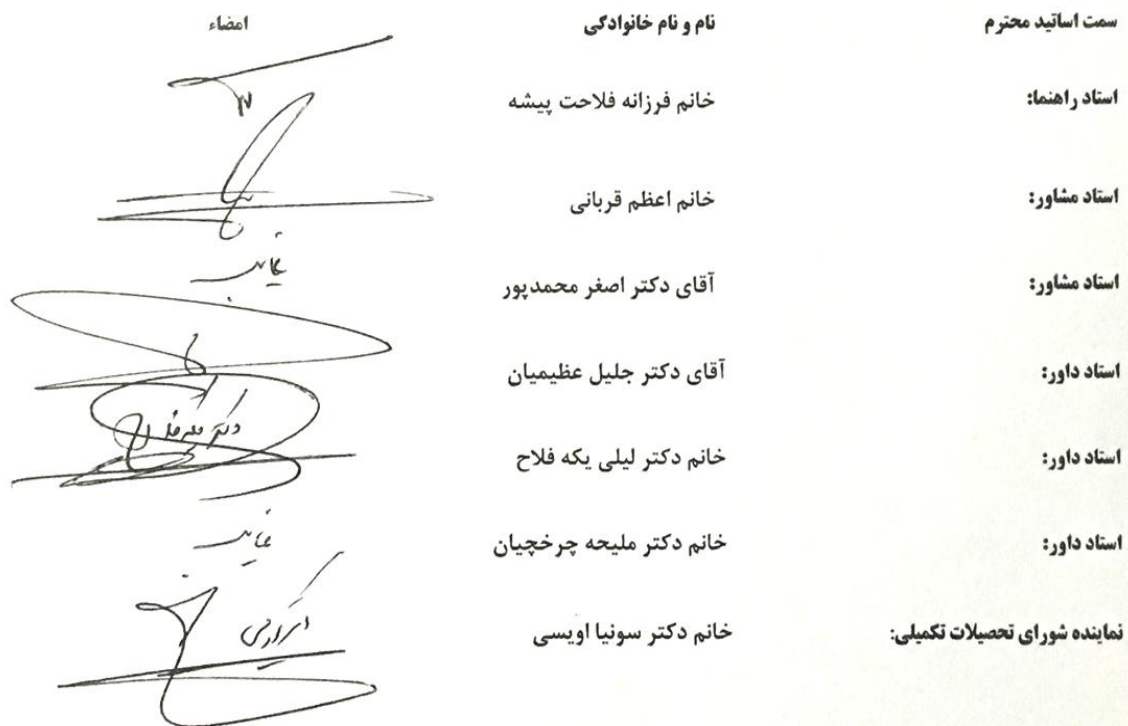 سمت اساتید محترم نام و نام خانوادگی امضاء
استاد راهنما: خانم فرزانه فلاحت پیشه
استاد مشاور: خانم اعظم قربانی
استاد مشاور: آقای دکتر اصغر محمدپور
غایب
استاد داور: آقای دکتر جلیل عظیمیان
استاد داور: خانم دکتر لیلی یکه فلاح
دکتر
استاد داور: خانم دکتر ملیحه چرخچیان
غایب
نماینده شورای تحصیلات تکمیلی: خانم دکتر سونیا اویسی